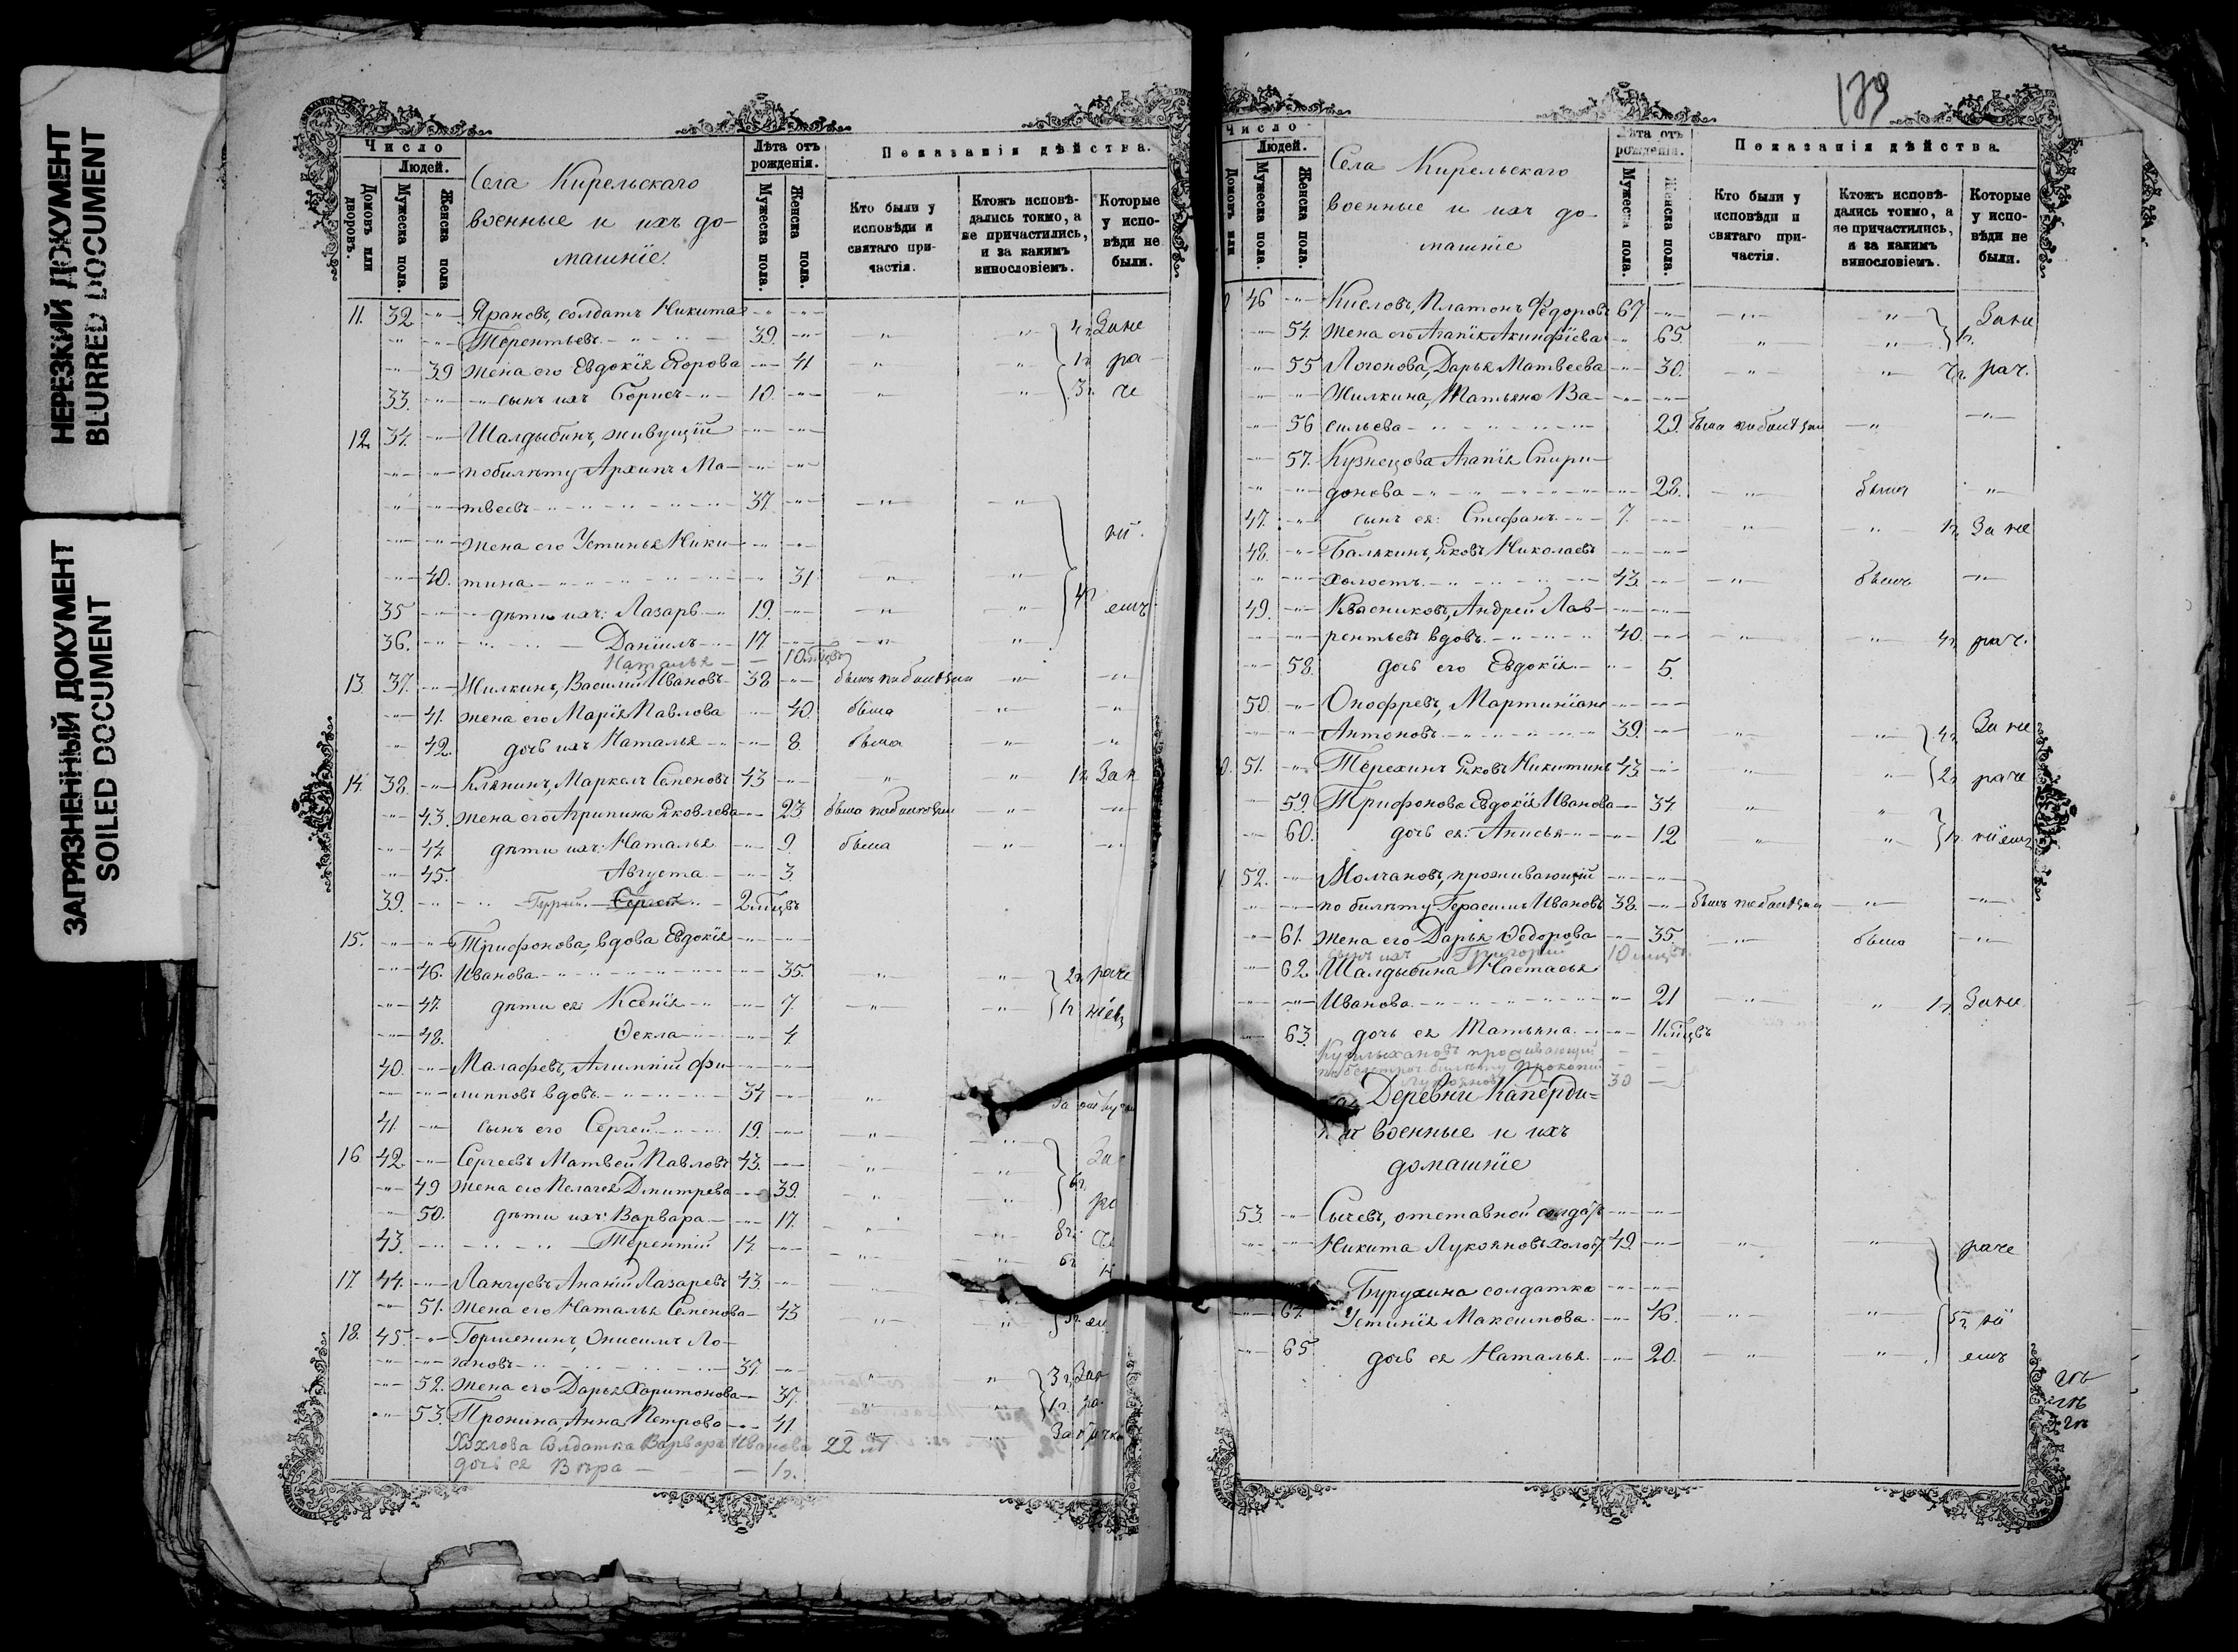 НЕРЕЗКИЙ ДОКУМЕНТ
BLURRED DOCUMENT
ЗАГРЯЗНЕННЫЙ ДОКУМЕНТ
SOILED DOCUMENT
Число
Людей.
Домовъ или дворовъ.
Мужеска пола.
Женска пола
Села Кирельскаго
военные и ихъ до-
машніе.
Лѣта отъ рожденія.
Мужеска пола.
Женска пола.
Показанія дѣйства.
Кто были у исповѣди и святаго причастія.
Ктожъ исповѣ-дались токмо, а не причастились, и за какимъ винословіемъ.
Которые у испо-вѣди не были.
11. 32 Ярановъ, солдатъ Никита
Терентьевъ 39. 4 г. За не
39 жена его Евдокія Егорова 41 1 г. ра
33. сынъ ихъ Борисъ 10. 3 г. че
12. 34. Шалдыбинъ, живущій
по билету Архипъ Ма-
твеевъ 37.
жена его Устинья Ники-
40. тина 31
35 дѣти ихъ: Лазарь 19.
36. Даніилъ 17
Наталья 10 мѣцевъ
13. 37. Жилкинъ, Василій Ивановъ 38
41. жена его Марія Павлова 40. была
42. дочь ихъ Наталья 8. была
14. 38. Клянинъ, Маркелъ Семеновъ 43 1 г. За н
43. жена его Агрипина Яковлева 23
44. дѣти ихъ: Наталья 9. была
45. Августа 3.
39. Сергей 2 мѣцевъ
15. Трифонова, вдова Евдокія
46. Иванова 35. 2 г. раче
47. дѣти ея: Ксенія 7.
48. Ѳекла 4
40. Малафеевъ, Алимпій Фи-
липповъ вдовъ 34
41. сынъ его Сергей 19.
16 42. Сергеевъ Матвей Павловъ 43.
49 жена его Пелагея Дмитрева 39.
50. дѣти ихъ: Варвара 17.
43. Терентій 14.
17. 44. Лангуевъ Ананій Лазаревъ 43.
51. жена его Наталья Семенова 43
18. 45. Горшенинъ, Онисимъ Ло-
гановъ 37.
52. жена его Дарья Харитонова 37. 3 г.
53. Пронина, Анна Петрова 41. 1 г.
Хохлова Солдатка Варвара Иванова 22 л
дочь ея Вѣра 1 г.
179
Число
Людей.
Домовъ или
Мужеска пола.
Женска пола.
Села Кирельскаго
военные и ихъ до-
машніе
Лѣта отъ рожденія.
Мужеска пола.
Женска пола.
Показанія дѣйства.
Кто были у исповѣди и святаго при-частія.
Ктожъ исповѣ-дались токмо, а не причастились, и за какимъ винословіемъ.
Которые у испо-вѣди не были.
46 Кисловъ, Платонъ Ѳедоровъ 67
54. жена его Агапія Акинфіева 65. 1 г.
55 Логонова, Дарья Матвеева 30. рач.
Жилкина, Татьяна Ва-
56 сильева 29. была
57. Кузнецова Агапія Спири-
донова 28.
47. сынъ ея: Стефанъ 7. 1 г. За не
48. Балякинъ, Яковъ Николаевъ
холостъ 43.
49. Квасниковъ, Андрей Лав-
рентьевъ вдовъ 40. 4 г. рач.
58. дочь его Евдокія 5.
50. Онофревъ, Мартиніанъ
Антоновъ 39. 4 г. За не
51. Терехинъ Яковъ Никитинъ 43 2 г. раче
59. Трифонова Евдокія Иванова 34
60. дочь ея: Анисья 12 1 г.
52. Молчановъ, проживающій
по билѣту Герасимъ Ивановъ 38.
61. жена его Дарья Ѳедорова 35. была
сынъ ихъ Григорій 10 мѣцевъ
62. Шалдыбина Настасья
Иванова 21 1 г. За не
63. дочь ея Татьяна 11 мѣцевъ
проживающій
Прокопій
30
Деревни Каперди-
военные и ихъ
домашніе
53. Сычевъ, отставной солдатъ
Никита Лукояновъ холост. 49. раче
Бурухина солдатка
64. Устинія Максимова 46. 5 г.
65 дочь ея Наталья 20.